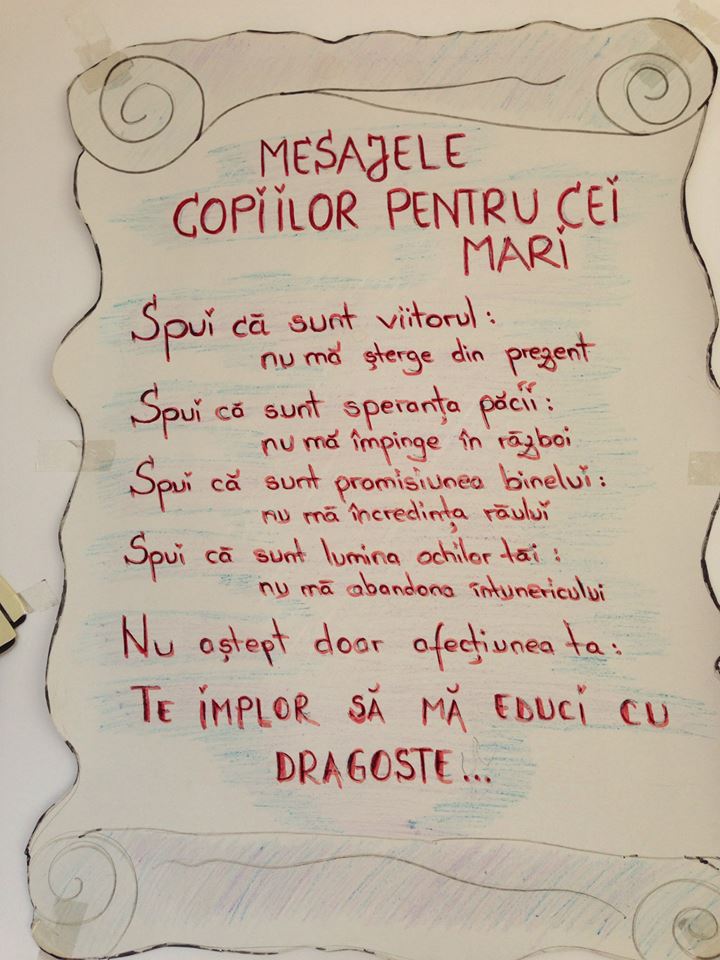 MESAJELE
COPIILOR PENTRU CEI
MARI
Spui că sunt viitorul:
nu mă șterge din prezent
Spui că sunt speranța păcii:
nu mă împinge în război
Spui că sunt promisiunea binelui:
nu mă încredința răului
Spui că sunt lumina ochilor tăi:
nu mă abandona întunericului
Nu aștept doar afecțiunea ta:
TE IMPLOR SĂ MĂ EDUCI CU
DRAGOSTE...